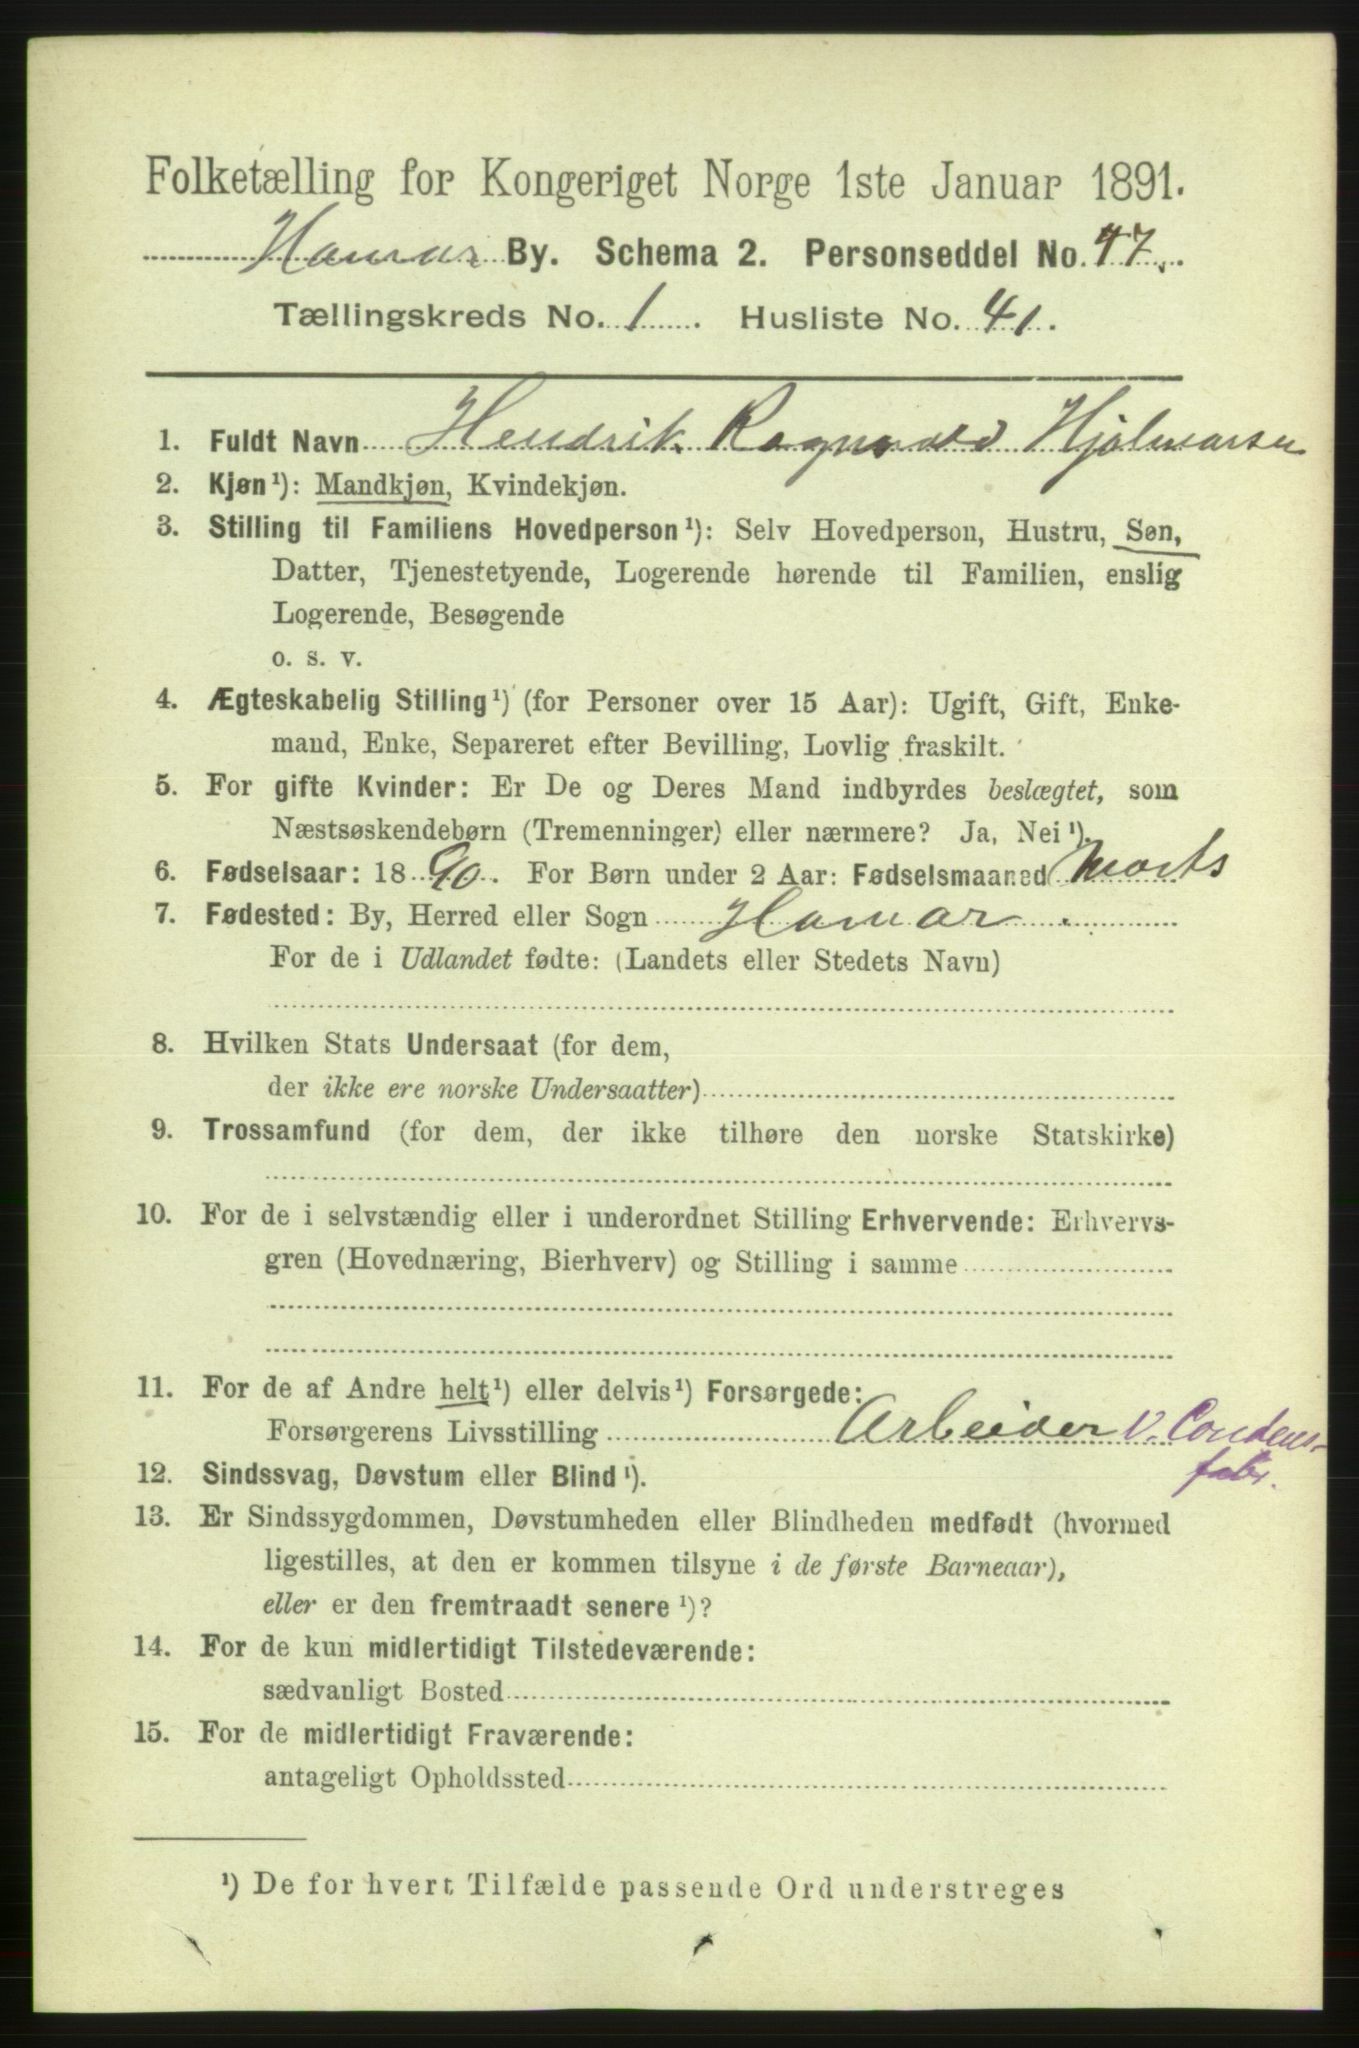 Folketælling for Kongeriget Norge 1ste Januar 1891.
Hamar By. Schema 2. Personseddel No. 47.
Tællingskreds No. 1. Husliste No. 41.
1. Fuldt Navn Hendrik Ragnvald Hjalmarsen
2. Kjøn¹): Mandkjøn, Kvindekjøn.
3. Stilling til Familiens Hovedperson¹): Selv Hovedperson, Hustru, Søn,
Datter, Tjenestetyende, Logerende hørende til Familien, enslig
Logerende, Besøgende
o. s. v.
4. Ægteskabelig Stilling¹) (for Personer over 15 Aar): Ugift, Gift, Enke-
mand, Enke, Separeret efter Bevilling, Lovlig fraskilt.
5. For gifte Kvinder: Er De og Deres Mand indbyrdes beslægtet, som
Næstsøskendebørn (Tremenninger) eller nærmere? Ja, Nei¹).
6. Fødselsaar: 1890. For Børn under 2 Aar: Fødselsmaaned Marts
7. Fødested: By, Herred eller Sogn Hamar.
For de i Udlandet fødte: (Landets eller Stedets Navn)
8. Hvilken Stats Undersaat (for dem,
der ikke ere norske Undersaatter)
9. Trossamfund (for dem, der ikke tilhøre den norske Statskirke)
10. For de i selvstændig eller i underordnet Stilling Erhvervende: Erhvervs-
gren (Hovednæring, Bierhverv) og Stilling i samme
11. For de af Andre helt¹) eller delvis¹) Forsørgede:
Forsørgerens Livsstilling Arbeider v. Condens-
fabr.
12. Sindssvag, Døvstum eller Blind¹).
13. Er Sindssygdommen, Døvstumheden eller Blindheden medfødt (hvormed
ligestilles, at den er kommen tilsyne i de første Barneaar),
eller er den fremtraadt senere¹)?
14. For de kun midlertidigt Tilstedeværende:
sædvanligt Bosted
15. For de midlertidigt Fraværende:
antageligt Opholdssted
¹) De for hvert Tilfælde passende Ord understreges